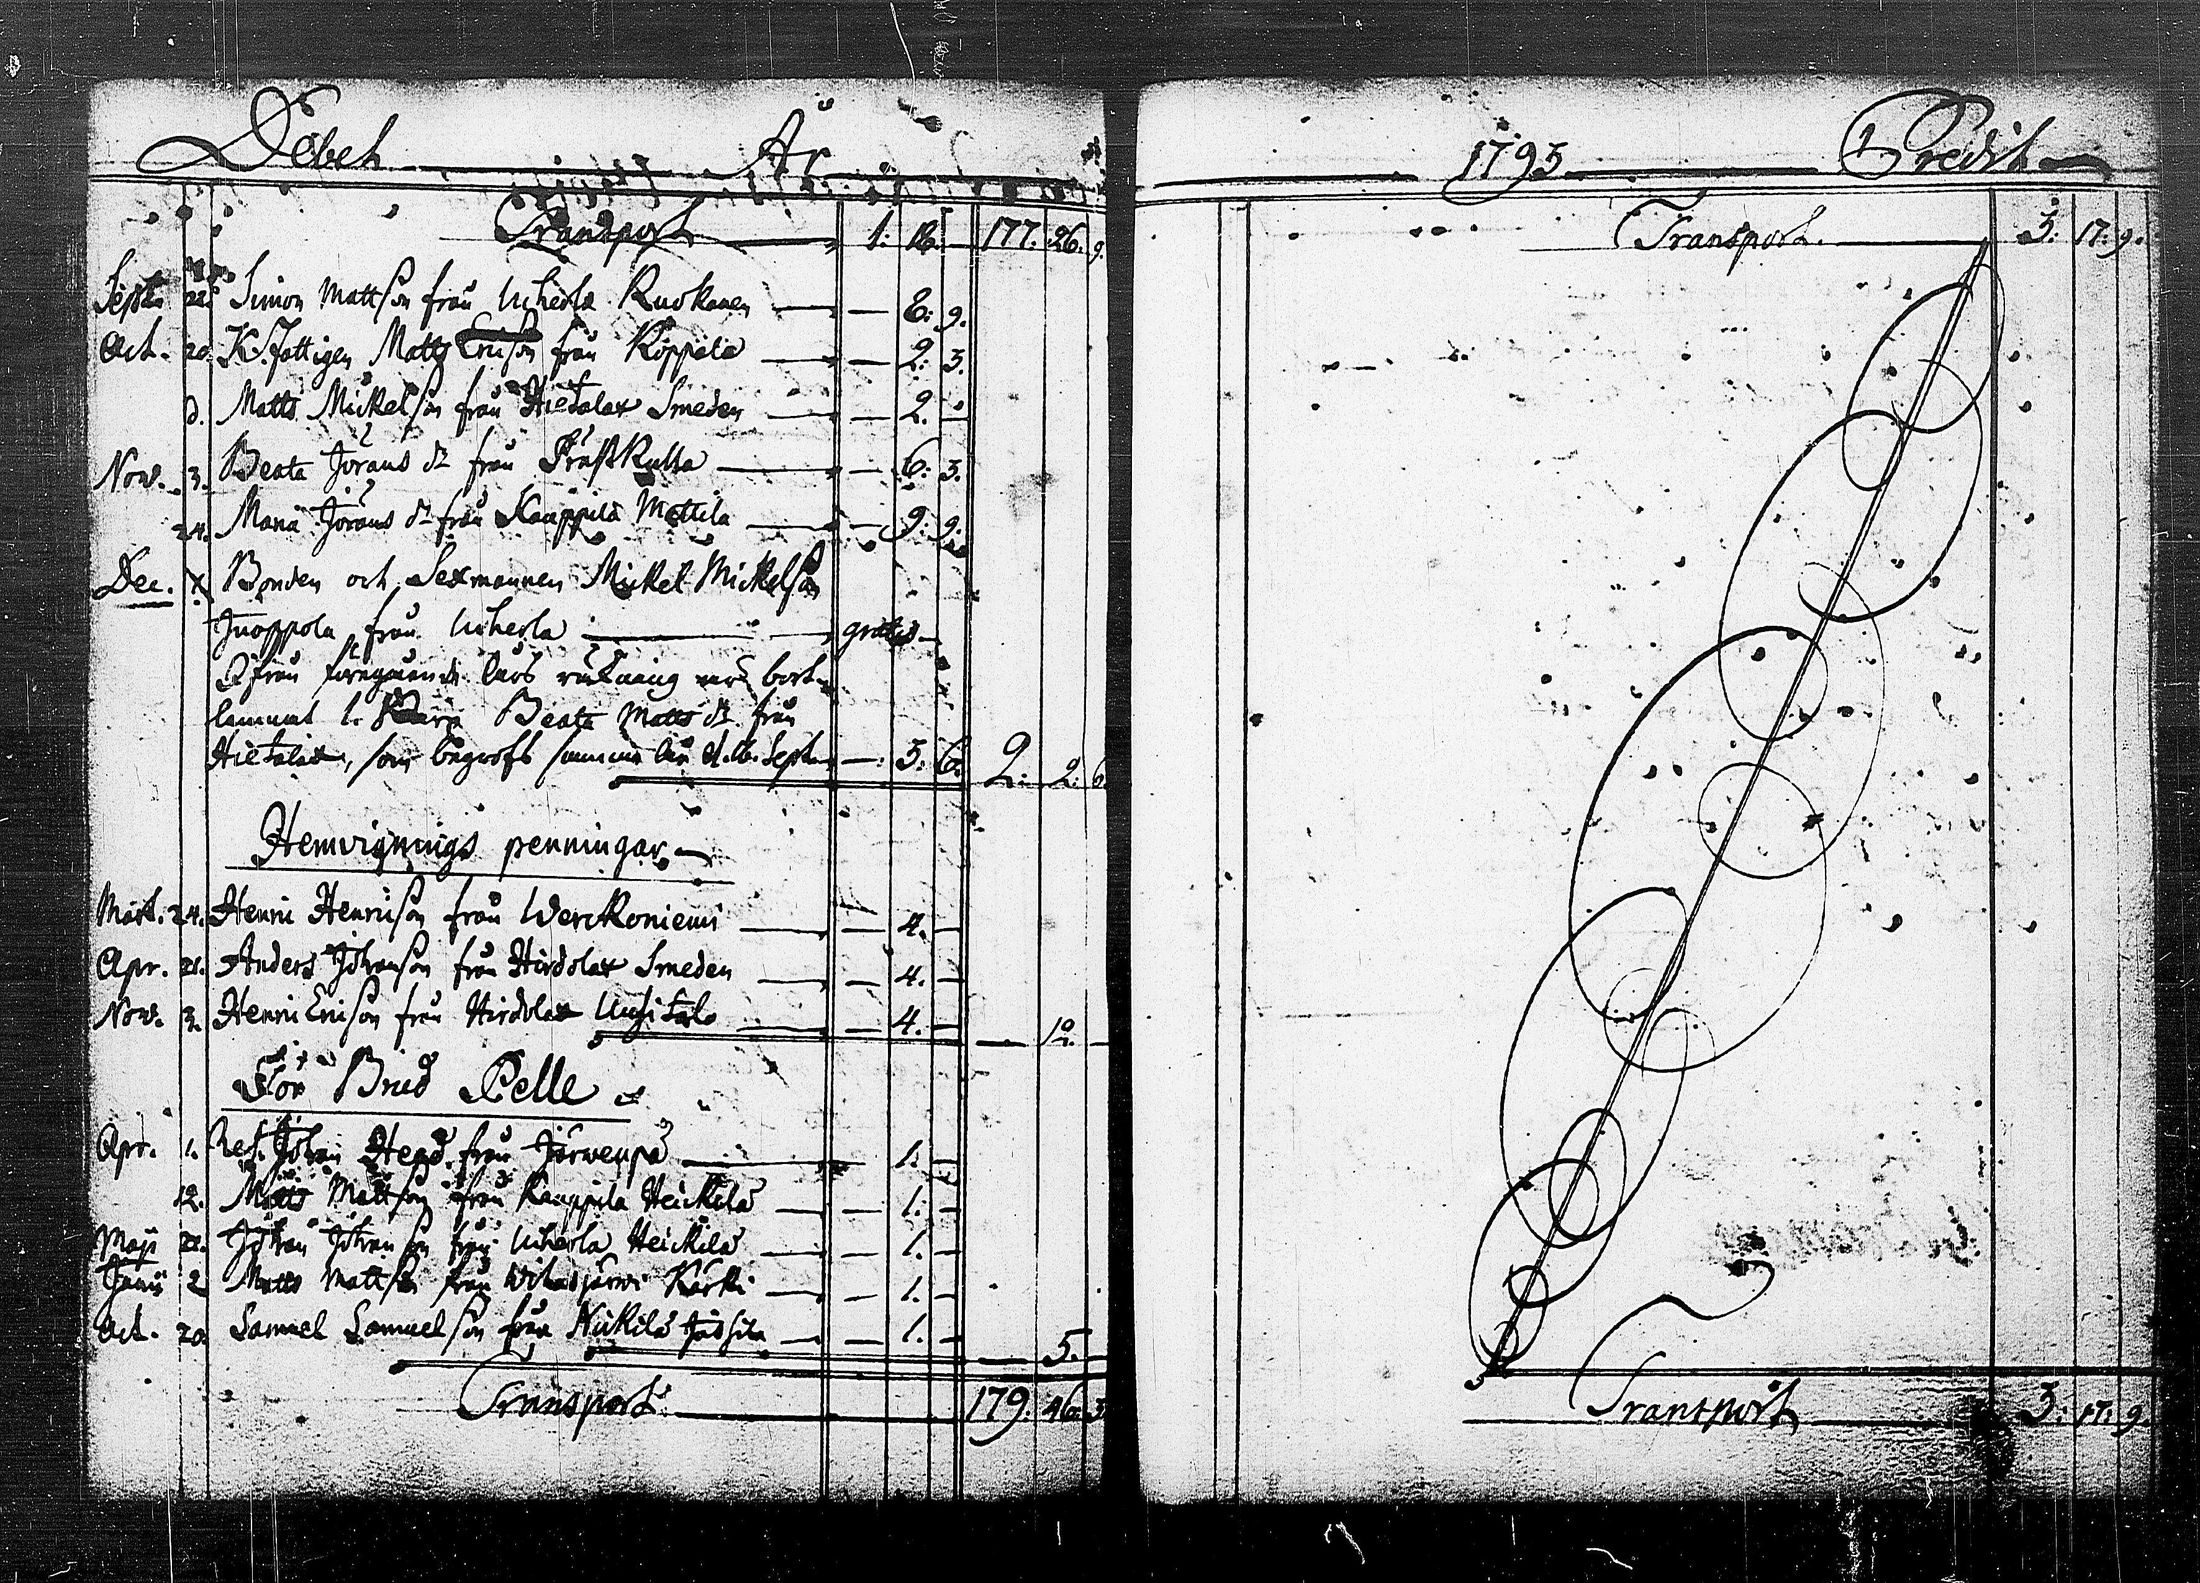 Debet År
Transport 1: 18. 177. 26. 9.
Septr. 22. Simon Mattson från Urherla Ruokanen — 8: 9.
Oct. 20. K. fattigen Matts Ericson från Köppälä — 2: 3.
d. Matts Mickelson från Hietalax Smeden — 2. —
Nov. 3. Beata Jörans dr från Prästkulla — 6: 3.
24. Maria Jörans dr från Kauppila Mattila — 9: 9.
Dec. Bonden och Sexmannen Mickel Mickelson
Juoppola från Urherla gratis
Ifrån föregående års räkning var bort-
lemnat 1. Beata Matts dr från
Hietalax, som begrofs samma år d. 16. Sept. — 3: 6. 2: 2: 6
Hemvignings penningar
Mart. 24. Henric Henricson från Werckoniemi — 4. —
Apr. 21. Anders Johanson från Hirdolax Smeden — 4. —
Nov. 3. Henric Ericson från Hirdolax Uusitalo — 4. — 12.
För Brud Pelle
Apr. 1. Johan från Järwenpä — 1. —
12. Matts Mattson från Kauppila Heickilä — 1. —
Maji 21. Johan Johanson från Urherla Heickilä — 1. —
Junii 2 Matts Mattson från Witasjärwi Kärki — 1. —
Oct. 20. Samuel Samuelson från Nickilä — 1. — 5. —
Transport 179. 46. 3
1793 Credit
Transport. 3: 17: 9.
Transport 3: 17: 9.